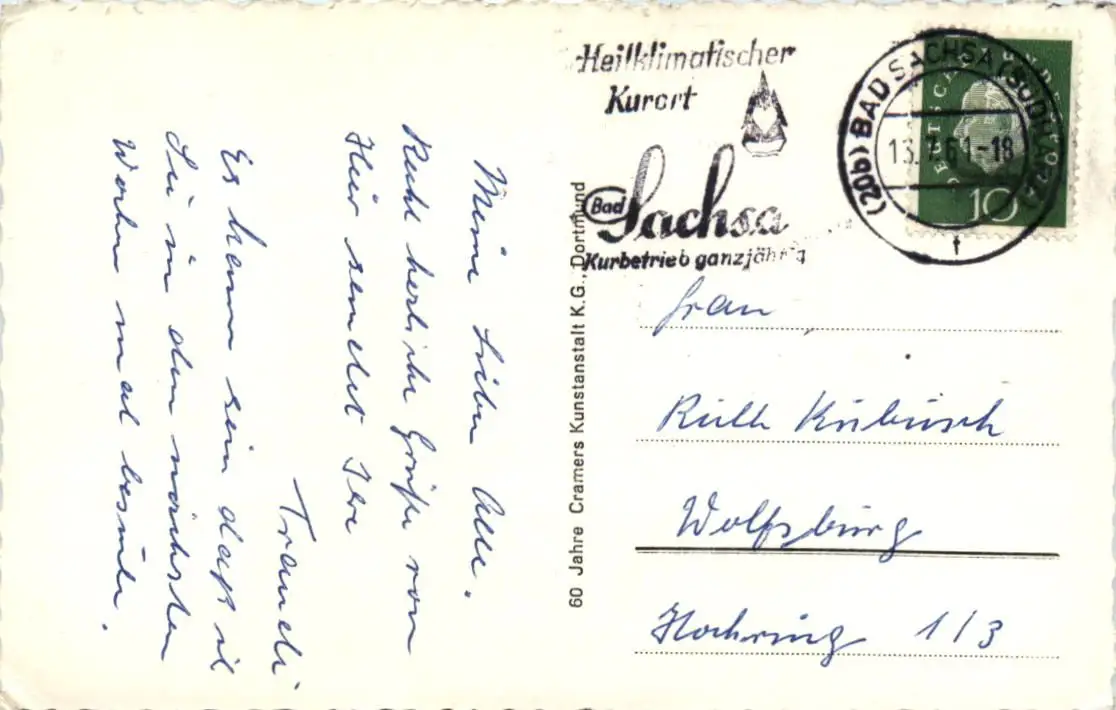 Meine Lieben Alle.
Recht herliche Grüße von
Hier sendet Ihre
Traudi
Es kann sein daß ich
Sie in den nächsten
Wochen mal besuche.
Heilklimatischer
Kurort
Bad Sachsa
Kurbetrieb ganzjährig
(20b) BAD SACHSA (SÜDHARZ)
13.7.61-18
f
DEUTSCHE BUNDESPOST
10
60 Jahre Cramers Kunstanstalt K.G., Dortmund
Frau
Ruth Kubusch
Wolfsburg
Hochring 1/3